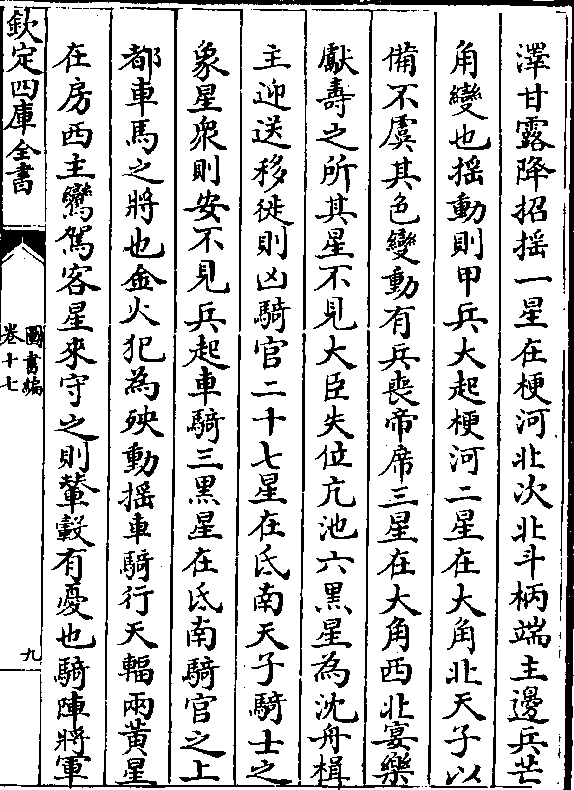 澤甘露降招摇一星在梗河北次北斗柄端主邊兵芒
角變也揺動則甲兵大起梗河二星在大角北天子以
備不虞其色變動有兵喪帝席三星在大角西北宴樂
獻壽之所其星不見大臣失位亢池六黑星為沈舟楫
主迎送移徙則凶騎官二十七星在氐南天子騎士之
象星衆則安不見兵起車騎三黑星在氐南騎官之上
都車馬之將也金火犯為殃動揺車騎行天輻兩黄星
在房西主鸞駕客星來守之則輦轂有憂也騎陣將軍
欽定四庫全書
圖書編
卷十七
九